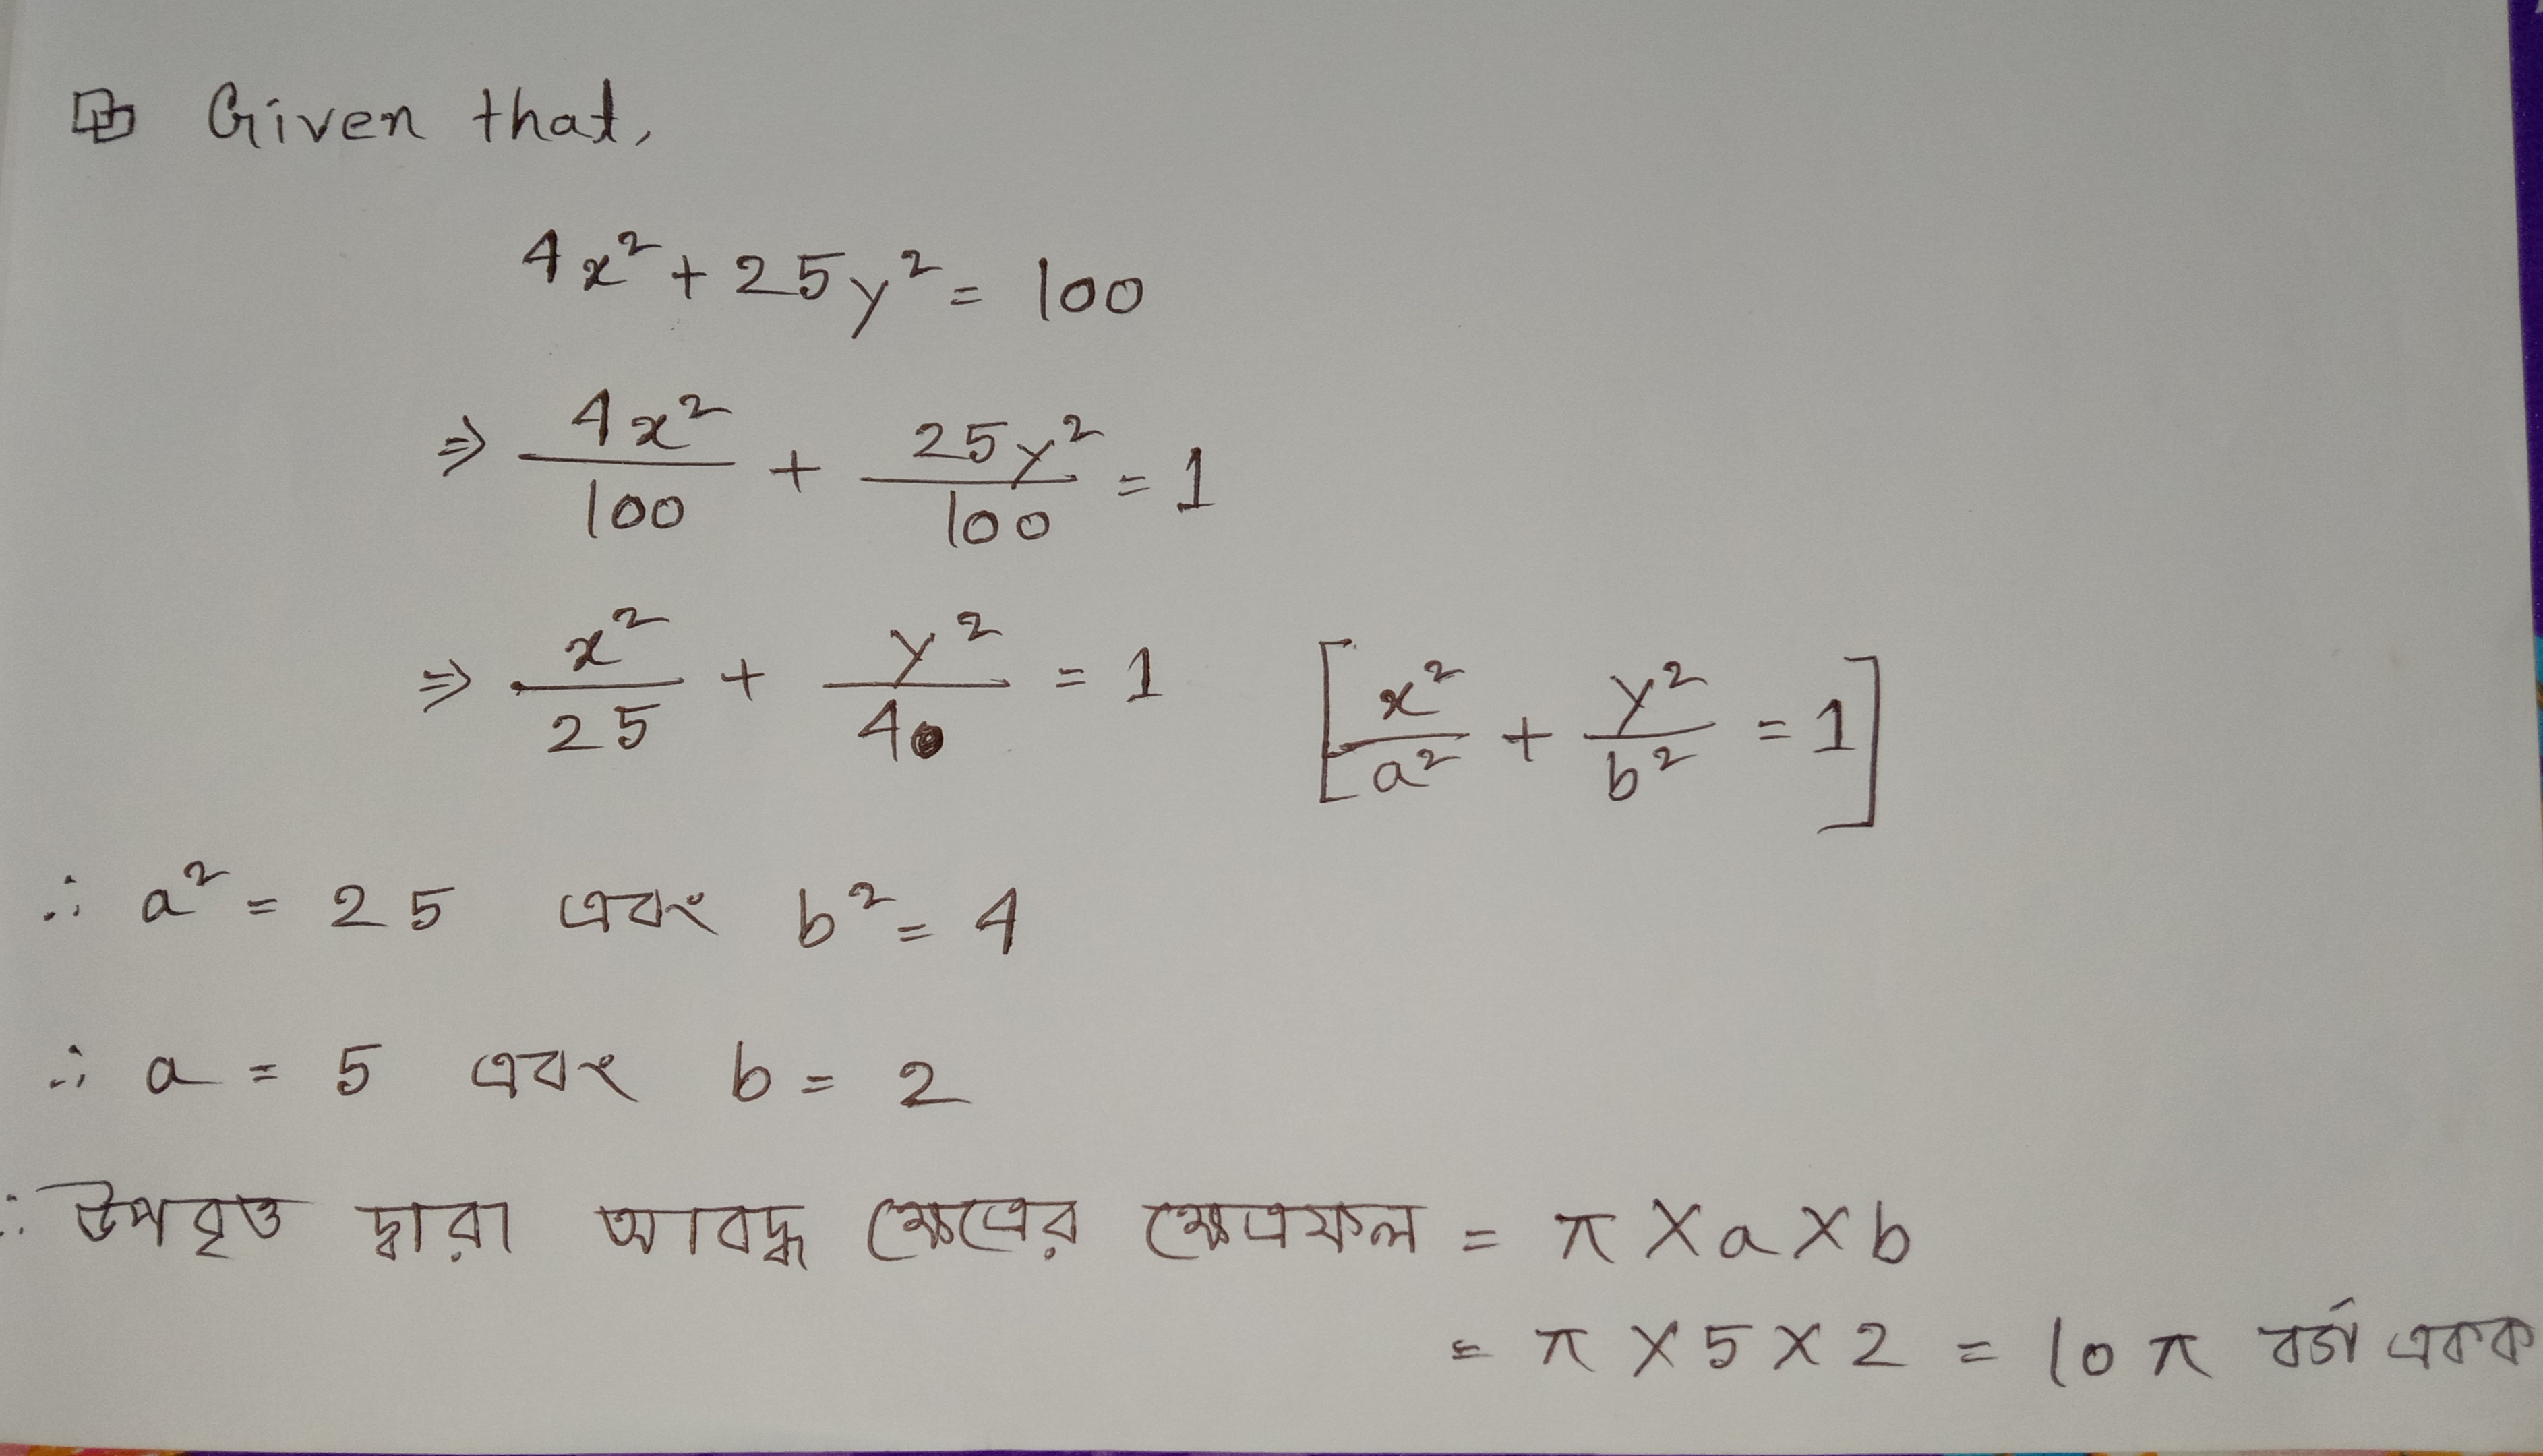 Given that,
4x² + 25y² = 100
⇒ 4x²/100 + 25y²/100 = 1
⇒ x²/25 + y²/4 = 1 [x²/a² + y²/b² = 1]
∴ a² = 25 এবং b² = 4
∴ a = 5 এবং b = 2
∴ উপবৃত্ত দ্বারা আবদ্ধ ক্ষেত্রের ক্ষেত্রফল = π × a × b
= π × 5 × 2 = 10 π বর্গ একক